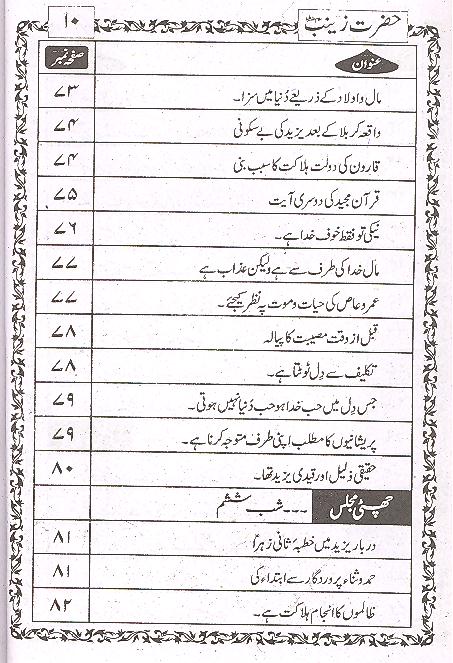 حضرت زینبؑ ۱۰
عنوان صفحہ نمبر
مال و اولاد کے ذریعے دُنیا میں سزا۔ ۷۳
واقعہ کربلا کے بعد یزید کی بے سکونی ۷۴
قارون کی دولت ہلاکت کا سبب بنی ۷۴
قرآن مجید کی دوسری آیت ۷۵
نیکی تو فقط خوف خدا ہے۔ ۷۶
مال خدا کی طرف سے ہے ولیکن عذاب ہے ۷۷
عمرو عاص کی حیات و موت پہ نظر کیجئے۔ ۷۷
قبل از وقت مصیبت کا پیالہ ۷۸
تکلیف سے دِل ٹوٹتا ہے۔ ۷۸
جس دِل میں حب خدا ہو حب دُنیا نہیں ہوتی۔ ۷۹
پریشانیوں کا مطلب اپنی طرف متوجہ کرنا ہے۔ ۷۹
حقیقی ذلیل اور قیدی یزید تھا۔ ۸۰
چھٹی مجلس ۔۔۔ شب ششم
دربار یزید میں خطبہ ثانی زہراؑ ۸۱
حمد و ثناء پروردگار سے ابتداء کی ۸۱
ظالموں کا انجام ہلاکت ہے۔ ۸۲